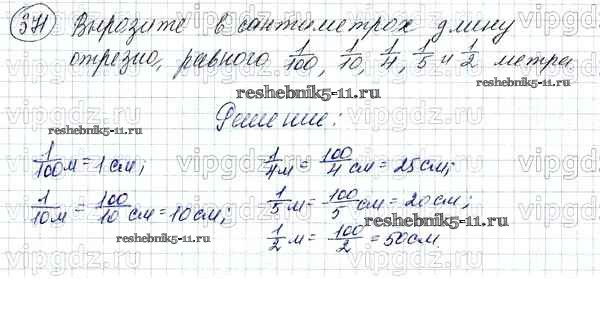 371 Выразите в сантиметрах длину
отрезка, равного 1/100, 1/10, 1/4, 1/5 и 1/2 метра
reshebnik5-11.ru
Решение:
reshebnik5-11.ru
1/100 м = 1 см; 1/4 м = 100/4 см = 25 см;
1/10 м = 100/10 см = 10 см; 1/5 м = 100/5 см = 20 см;
reshebnik5-11.ru
reshebnik5-11.ru
1/2 м = 100/2 = 50 см